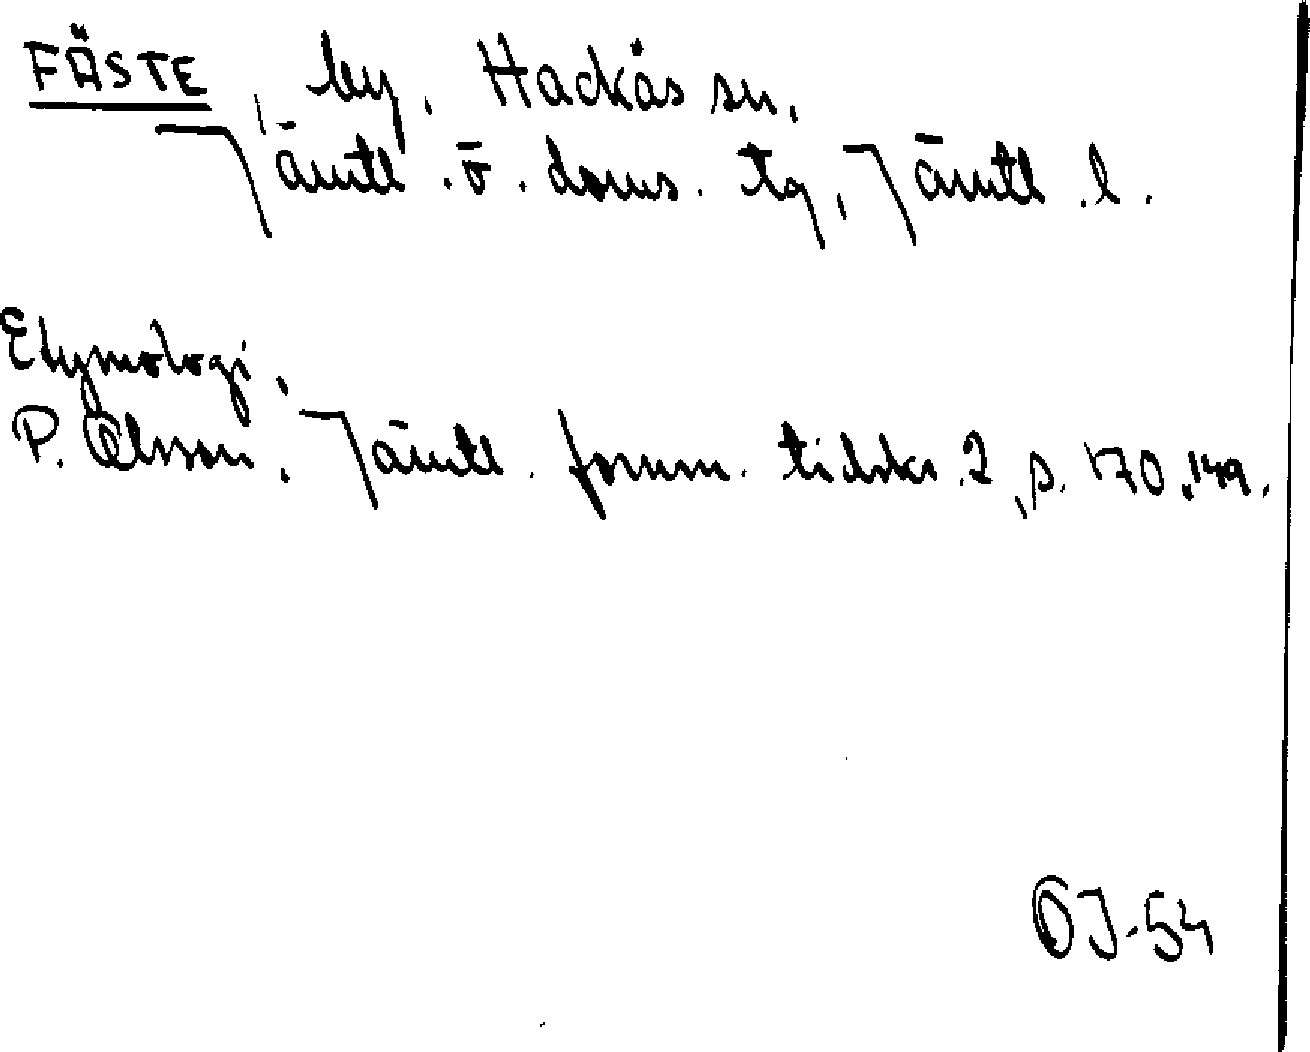 FÄSTE, by, Hackås sn,
Jämtl. ö. doms. tg, Jämtl. l.
Etymologi,
P. Olsson, Jämtl. fornm. tidskr. 2, s. 170,
OJ-54